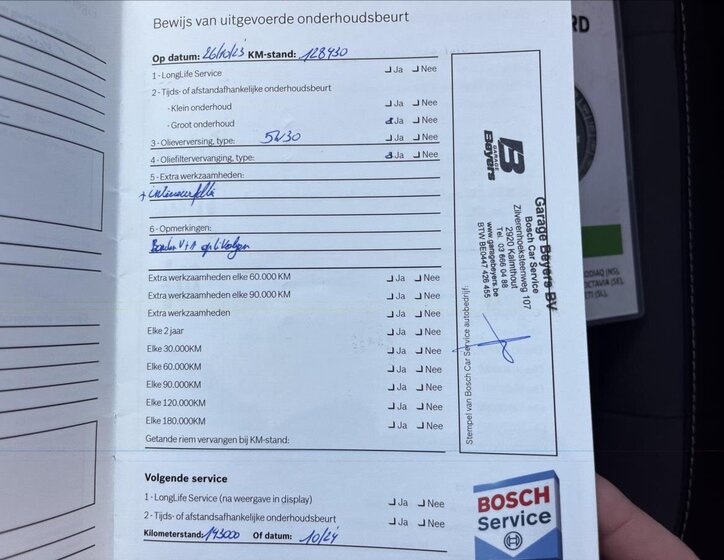 Bewijs van uitgevoerde onderhoudsbeurt
Op datum: 26/10/23 KM-stand: 128430
1 - LongLife Service Ja Nee
2 - Tijds- of afstandafhankelijke onderhoudsbeurt
- Klein onderhoud Ja Nee
- Groot onderhoud Ja Nee
3 - Olieverversing, type: 5W30 Ja Nee
4 - Oliefiltervervanging, type: Ja Nee
5 - Extra werkzaamheden:
+ interieurfilter
6 - Opmerkingen:
Banden V+A op te volgen
Extra werkzaamheden elke 60.000 KM Ja Nee
Extra werkzaamheden elke 90.000 KM Ja Nee
Extra werkzaamheden Ja Nee
Elke 2 jaar Ja Nee
Elke 30.000KM Ja Nee
Elke 60.000KM Ja Nee
Elke 90.000KM Ja Nee
Elke 120.000KM Ja Nee
Elke 180.000KM Ja Nee
Getande riem vervangen bij KM-stand:
Volgende service
1 - LongLife Service (na weergave in display) Ja Nee
2 - Tijds- of afstandsafhankelijke onderhoudsbeurt Ja Nee
Kilometerstand: 143000 Of datum: 10/24
Stempel van Bosch Car Service autobedrijf:
B
GARAGE
Beyers
Garage Beyers BV
Bosch Car Service
Zilverenhoeksteenweg 107
2920 Kalmthout
Tel. 03 666 04 88
www.garagebeyers.be
BTW BE0447 428 455
BOSCH
Service
RD
ODIAQ (NS),
OCTAVIA (5E),
ETI (5L).